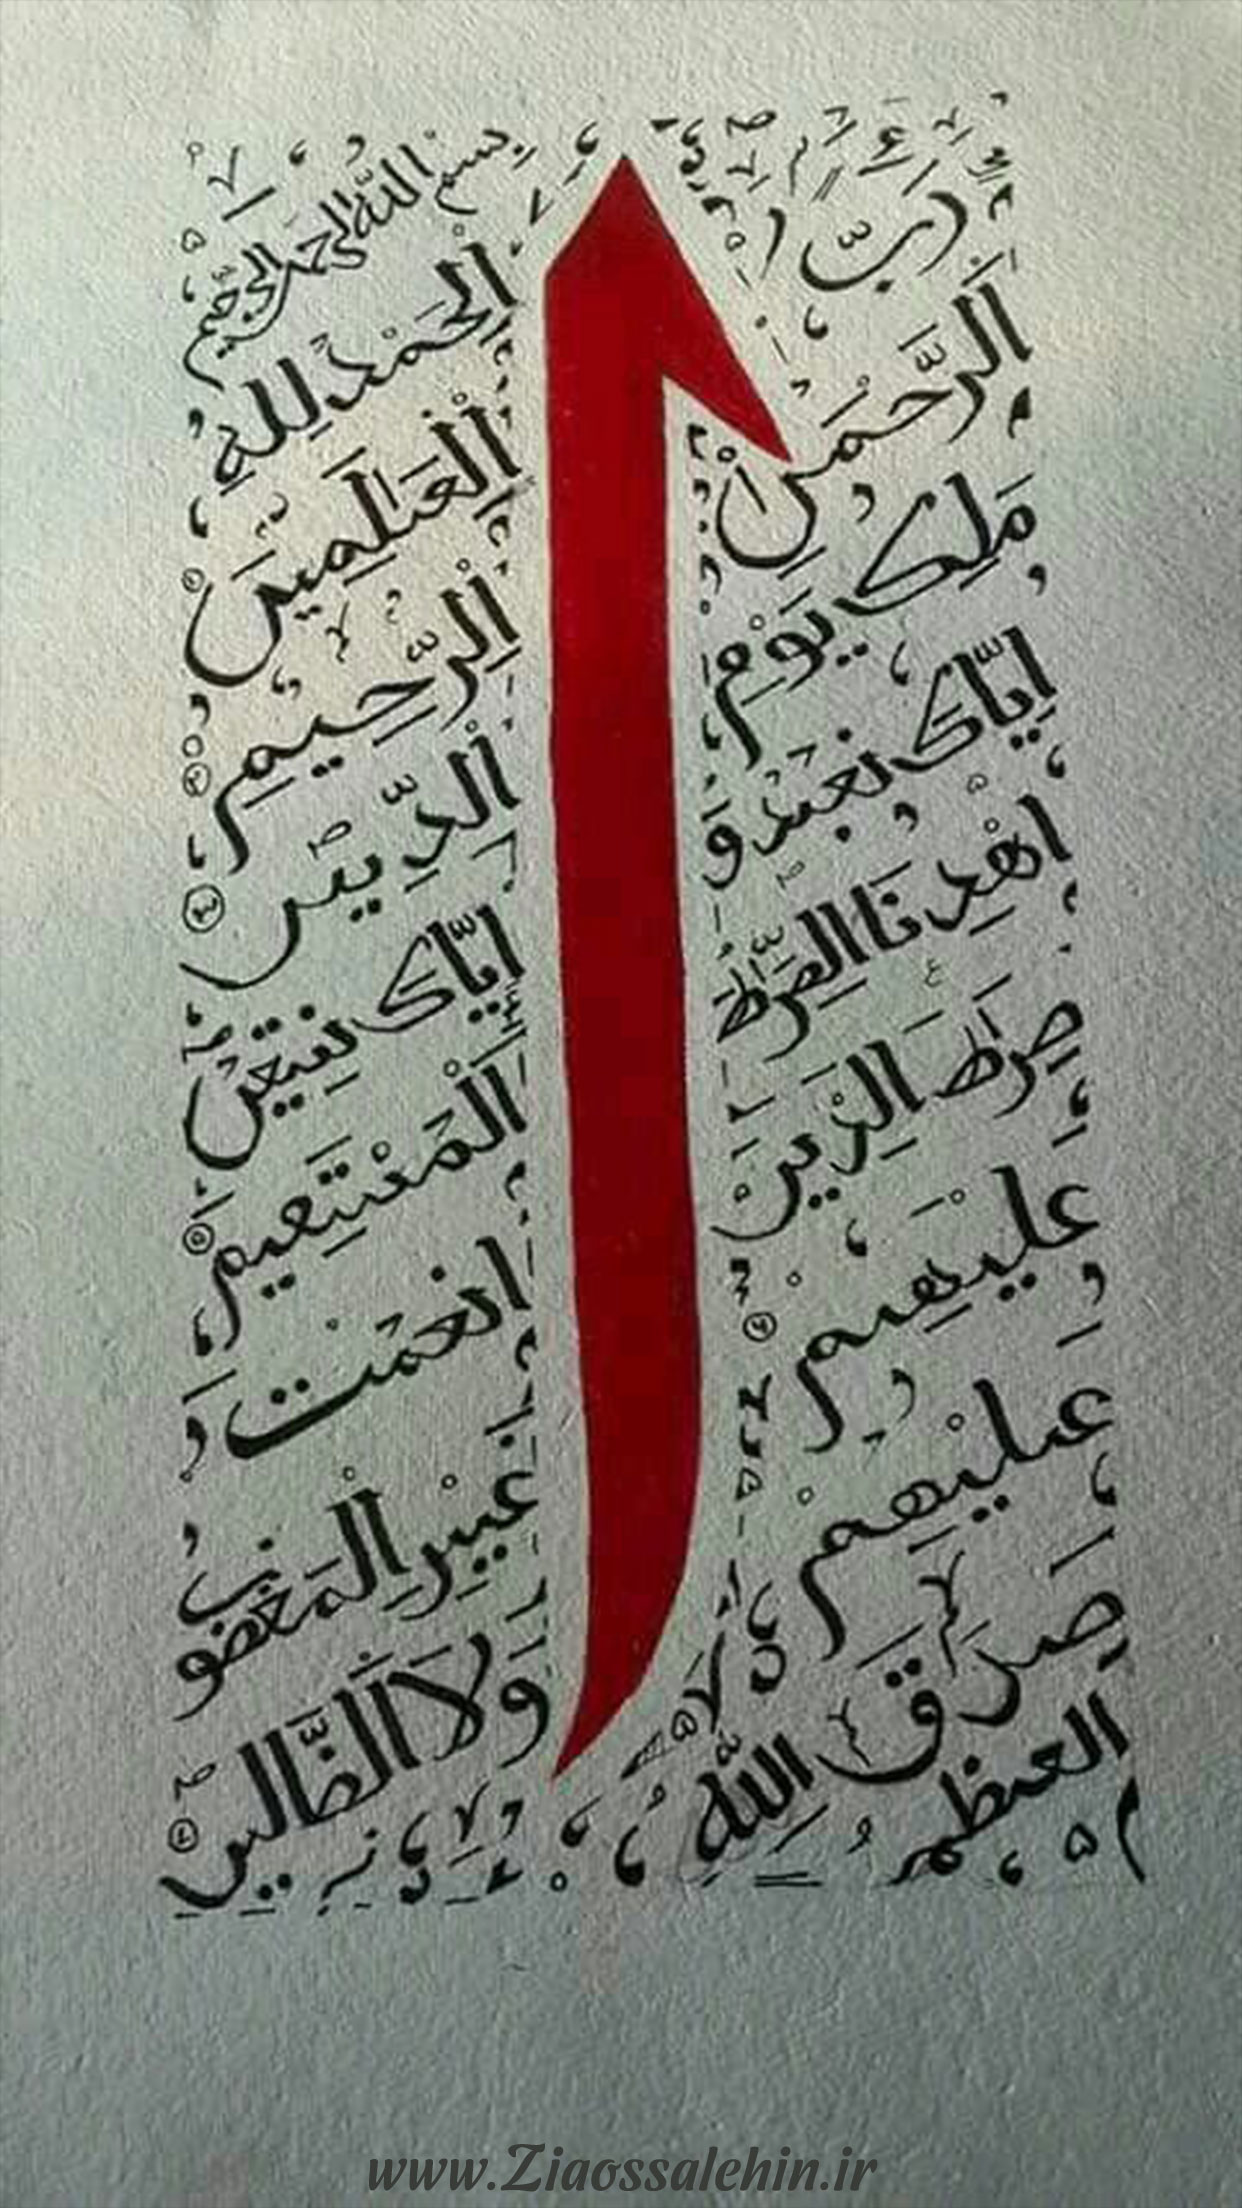 بِسْمِ اللّٰهِ الرَّحْمٰنِ الرَّحِيْمِ
اَلْحَمْدُ لِلّٰهِ
رَبِّ
الْعَالَمِيْنَ ①
اَلرَّحْمٰنِ
الرَّحِيْمِ ②
مٰلِكِ يَوْمِ
الدِّيْنِ ③
اِيَّاكَ نَعْبُدُ وَ
اِيَّاكَ نَسْتَعِيْنُ
اِهْدِنَا الصِّرَاطَ
الْمُسْتَقِيْمَ ⑤
صِرَاطَ الَّذِيْنَ
اَنْعَمْتَ
عَلَيْهِمْ ⑥
غَيْرِ الْمَغْضُوْبِ
عَلَيْهِمْ
وَلَا الضَّالِّيْنَ
صَدَقَ اللّٰهُ
العظيم
www.Ziaossalehin.ir